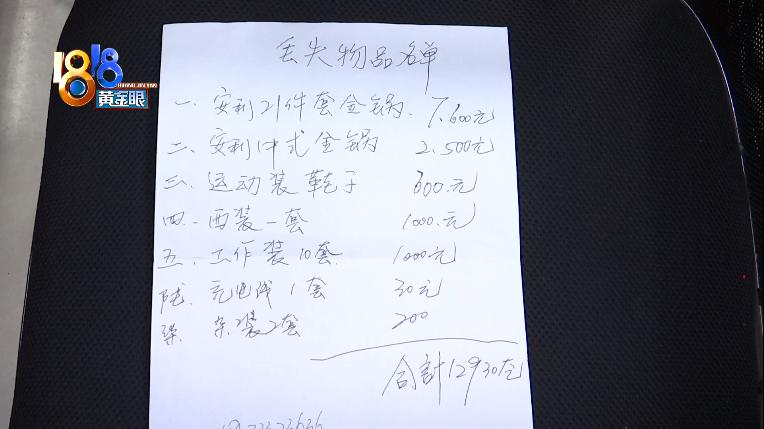 1818
HUANG JIN YAN
黄金眼
丢失物品名单
一、安利21件套金锅. 7.600元
二、安利中式金锅 2.500元
三、运动装鞋子 600.元
四、西装一套 1000.元
五、工作装10套. 1000元
陆. 充电线1套 30元
柒. 装2套 200
合計12930元